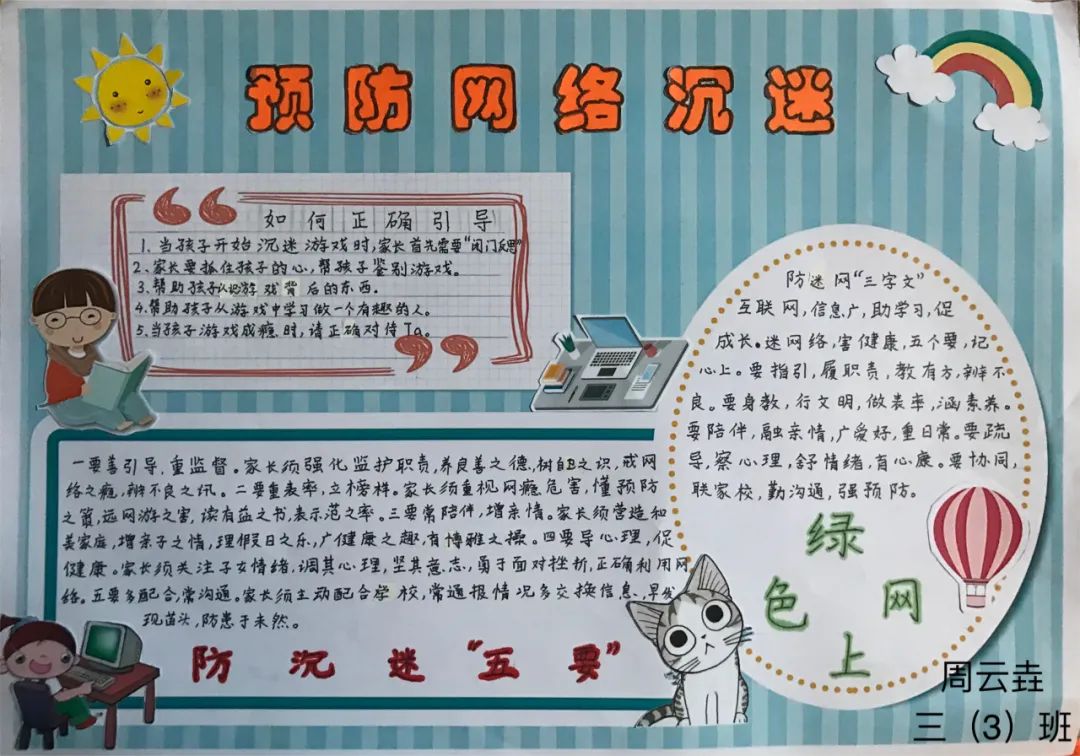 预防网络沉迷
如何正确引导
1、当孩子开始沉迷游戏时,家长首先需要“闭门反思”
2、家长要抓住孩子的心,帮孩子鉴别游戏。
3、帮助孩子认识游戏背后的东西。
4、帮助孩子从游戏中学习做一个有趣的人。
5、当孩子游戏成瘾时,请正确对待Ta。
防迷网“三字文”
互联网,信息广,助学习,促
成长。迷网络,害健康,五个要,记
心上。要指引,履职责,教有方,辨不
良。要身教,行文明,做表率,涵素养。
要陪伴,融亲情,广爱好,重日常。要疏
导,察心理,舒情绪,育心康。要协同,
联家校,勤沟通,强预防。
绿
色
网
上
一要善引导,重监督。家长须强化监护职责,养良善之德,树自B之识,戒网
络之瘾,辨不良之讯。二要重表率,立榜样。家长须重视网瘾危害,懂预防
之策,远网游之害,读有益之书,表示范之率。三要常陪伴,增亲情。家长须营造和
美家庭,增亲子之情,理假日之乐,广健康之趣,有博雅之操。四要导心理,促
健康。家长须关注子女情绪,调其心理,坚其意志,勇于面对挫折,正确利用网
络。五要多配合,常沟通。家长须主动配合学校,常通报情况多交换信息,早发
现苗头,防患于未然。
防沉迷“五要”
周云垚
三（3）班